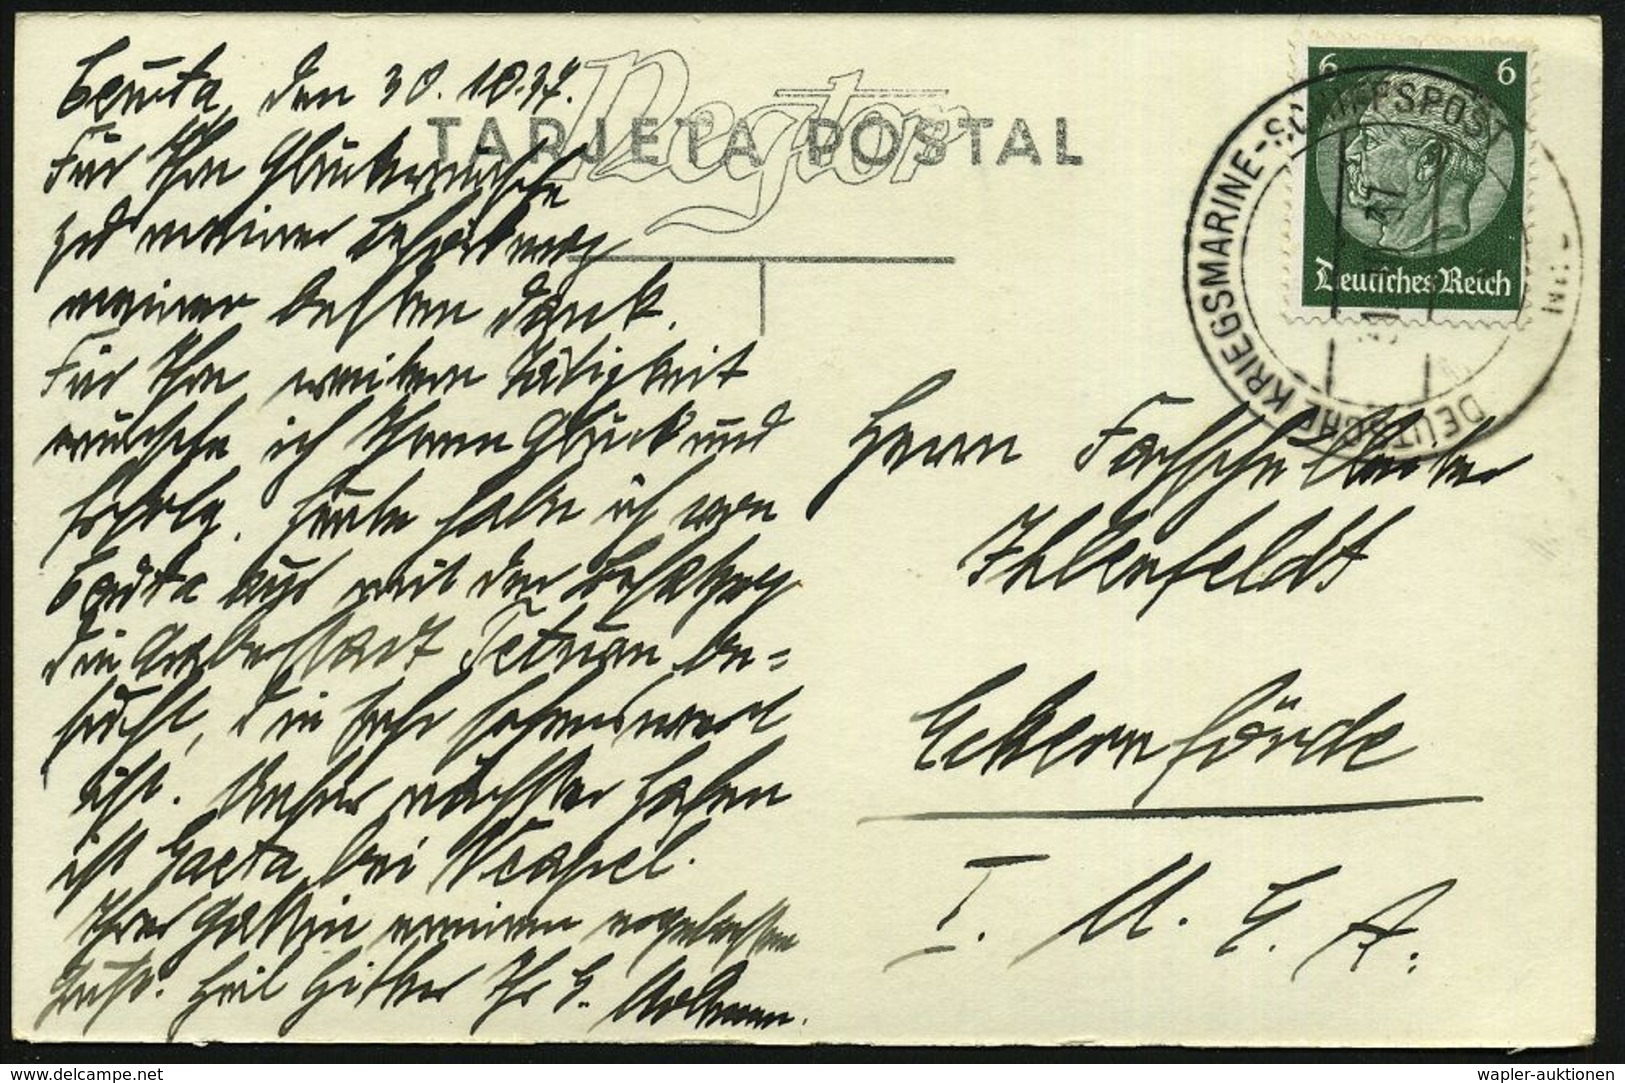 Ceuta, den 30. 10. 37.
Für Ihre Glückwünsche
zu meiner Beförderung
meinen besten Dank.
Für Ihre weitere Tätigkeit
wünsche ich Ihnen Glück und
Erfolg. Heute habe ich von
Ceuta aus mit der Besatzung
die Araberstadt Tetuan be=
sucht, die sehr sehenswert
ist. Unser nächster Hafen
ist Gaeta bei Neapel.
Ihrer Gattin meinen ergebensten
Gruß. Heil Hitler Ihr G.
TARJETA POSTAL
Nestor
6 6
Deutsches Reich
DEUTSCHE KRIEGSMARINE-SCHIFFSPOST
Herrn
Ihlenfeldt
Eckernförde
T. U. G. A.
www.delcampe.net
wapler-auktionen